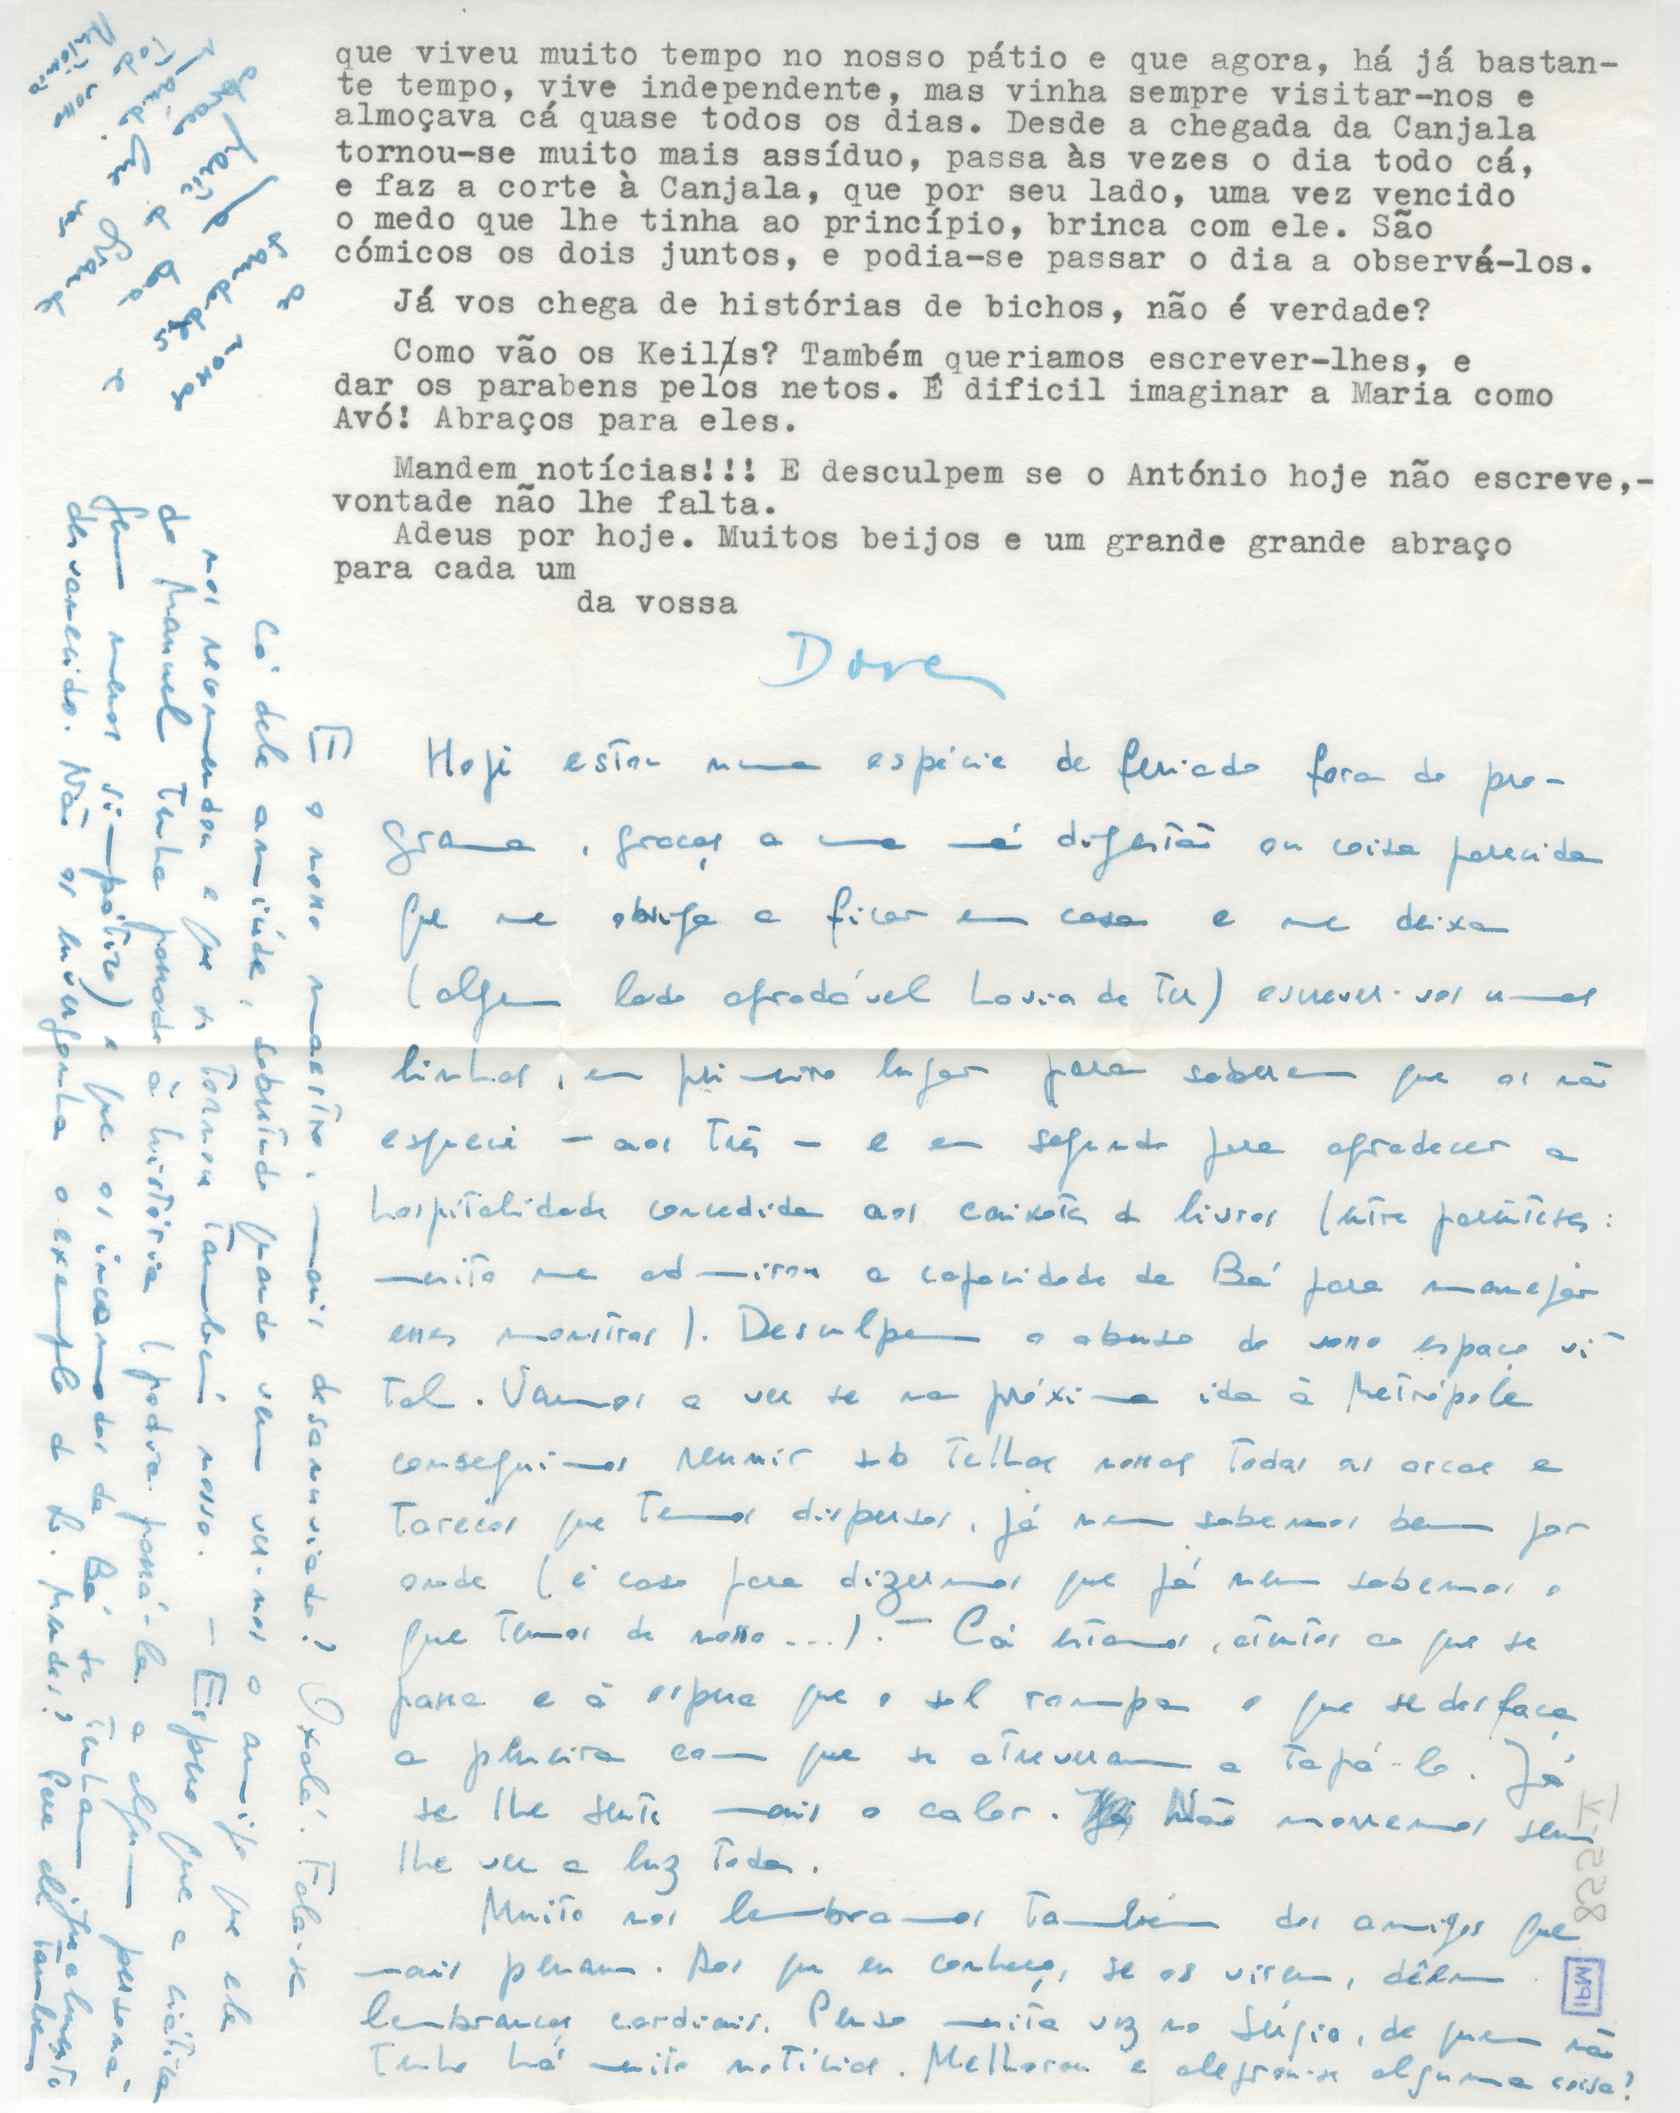 que viveu muito tempo no nosso pátio e que agora, há já bastan-
te tempo, vive independente, mas vinha sempre visitar-nos e
almoçava cá quase todos os dias. Desde a chegada da Canjala
tornou-se muito mais assíduo, passa às vezes o dia todo cá,
e faz a corte à Canjala, que por seu lado, uma vez vencido
o medo que lhe tinha ao princípio, brinca com ele. São
cómicos os dois juntos, e podia-se passar o dia a observá-los.
Já vos chega de histórias de bichos, não é verdade?
Como vão os Keils? Também queriamos escrever-lhes, e
dar os parabens pelos netos. É dificil imaginar a Maria como
Avó! Abraços para eles.
Mandem notícias!!! E desculpem se o António hoje não escreve,-
vontade não lhe falta.
Adeus por hoje. Muitos beijos e um grande grande abraço
para cada um
da vossa
Dore
Hoje estou numa espécie de feriado fora do pro-
grama, graças a uma má digestão ou coisa parecida
que me obriga a ficar em casa e me deixa
(algum lado agradável havia de ter) escrever-vos umas
linhas, em primeiro lugar para saberem que os não
esqueci - aos três - e em segundo para agradecer a
hospitalidade concedida aos caixotes de livros (entre parênteses:
muito me admirou a capacidade da Bá para manejar
esses monstros). Desculpem o abuso do vosso espaço vi-
tal. Vamos a ver se na próxima ida à Metrópole
conseguimos reunir sob telhas nossas todas as arcas e
tarecos que temos dispersos, já nem sabemos bem por
onde (é caso para dizermos que já nem sabemos o
que temos de nosso...). - Cá estamos, atentos ao que se
passa e à espera que o sol rompa e que se desfaça
a peneira com que se atreveram a tapá-lo. Já
se lhe sente mais o calor. Não morremos sem
lhe ver a luz toda.
Muito nos lembramos também dos amigos que
mais penam. Aos que eu conheço, se os virem, dêem
lembranças cordiais. Penso muita vez no Sérgio, de quem não
tenho há muito notícias. Melhorou e alegrou-se alguma coisa?
E o nosso maestro, mais desanuviado? Oxalá. Fala-se
cá dele amiúde, sobretudo quando vem ver-nos o amigo que ele
nos recomendou e que se tornou também nosso. - Espero que a ciática
do Manuel tenha passado à história (podia passá-la a algum persona-
gem menos simpático) e que os incómodos da Bá se tenham igualmente
desvanecido. Não os envergonha o exemplo do Zé. Mendes? Para ele também
vai
grande
António
VI 558
IPM